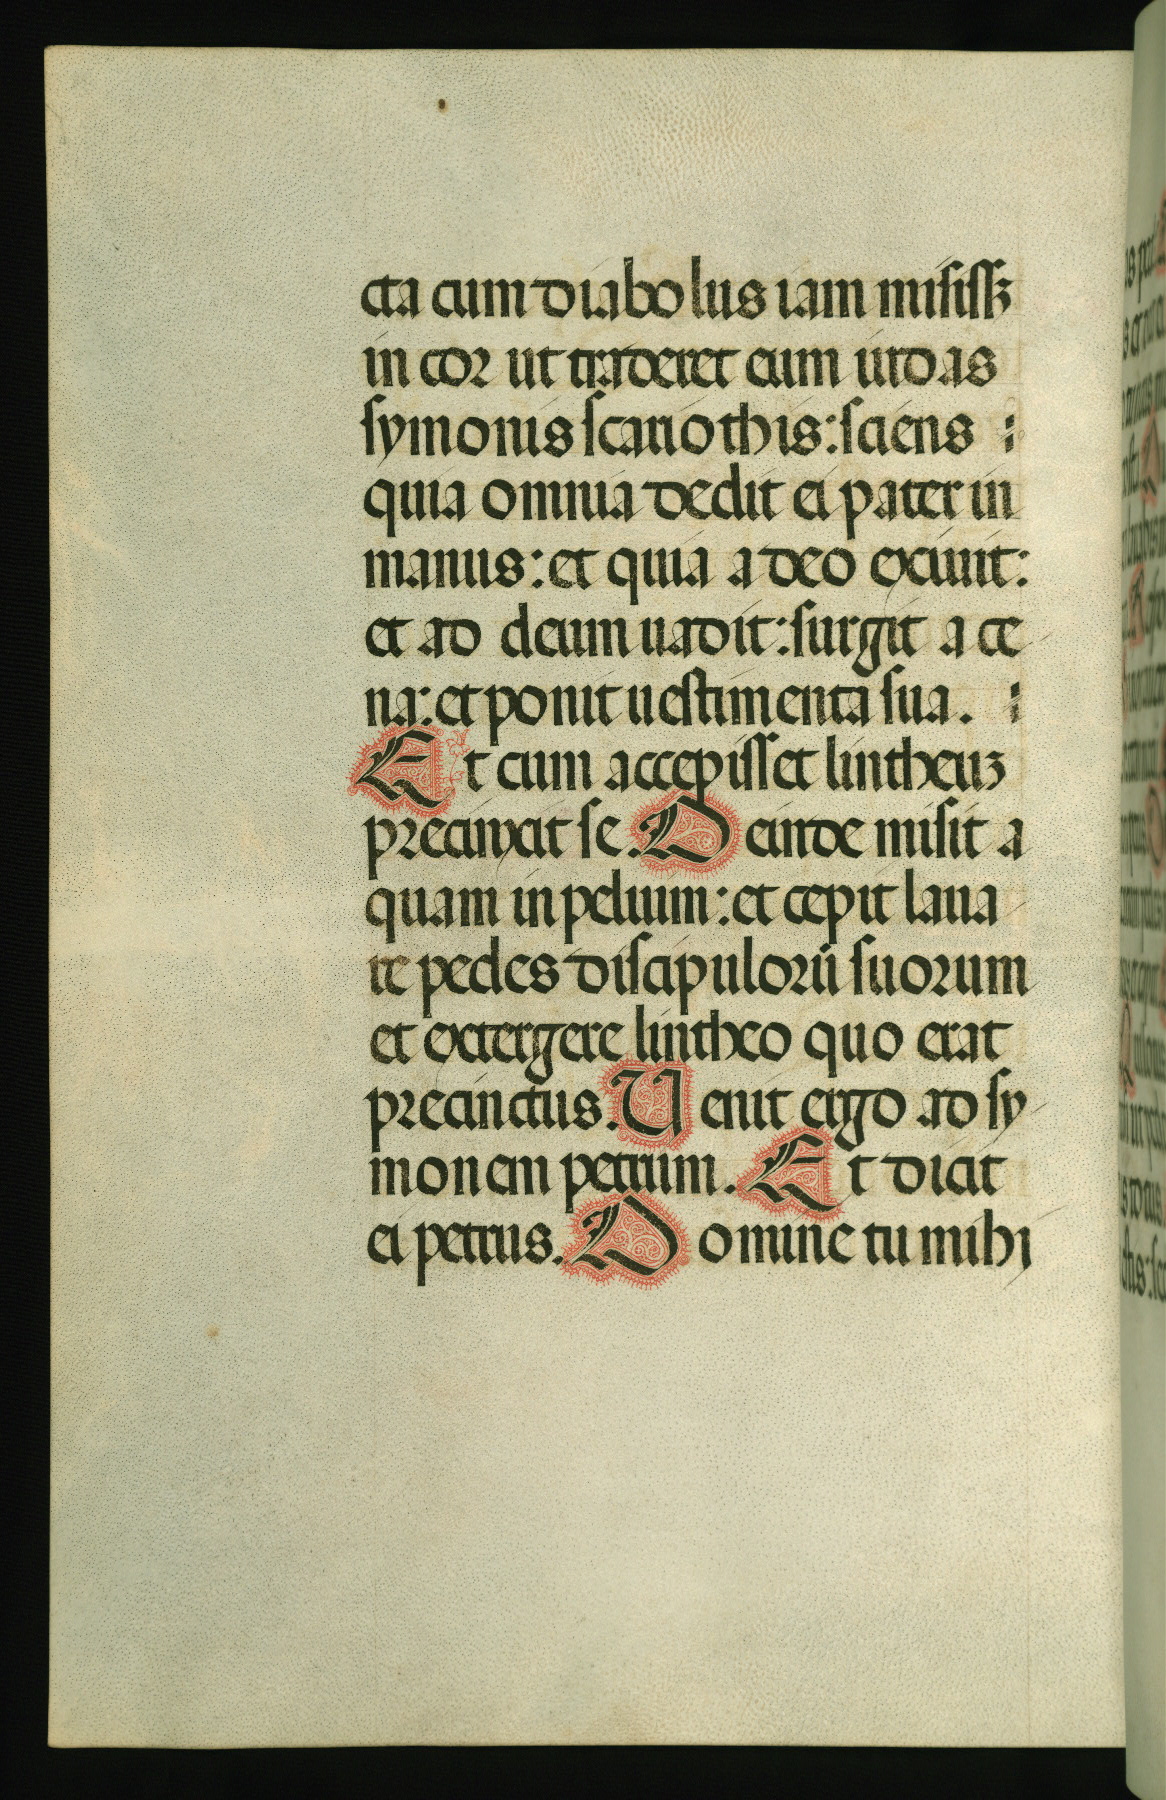 cta cum diabolus iam misissꝫ
in cor ut traderet eum iudas
symonis scariothis: sciens :
quia omnia dedit ei pater in
manus: et quia a deo exiuit:
et ad deum uadit: surgit a ce
na: et ponit uestimenta sua. :
Et cum accepisset lintheuꝫ
precinxit se. Deinde misit a
quam in peluim: et cepit laua
re pedes discipulorū suorum
et extergere lintheo quo erat
precinctus. Uenit ergo ad sy
monem petrum. Et dicit
ei petrus. Domine tu mihi